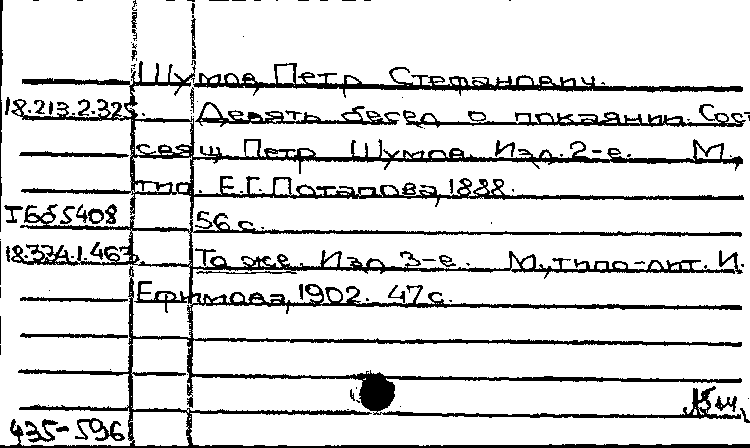 Шумов, Петр Стефанович.
18.213.2.325. Девять бесед о покаянии. Сост.
свящ. Петр Шумов. Изд. 2-е. М.,
тип. Е.Г. Потапова, 1888.
56 с.
18.374.1.463. То же. Изд. 3-е. М., типо-лит. И.
Ефимова, 1902. 47 с.
435-596